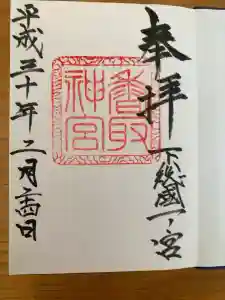 奉拝
下総國一ノ宮
香取神宮
平成三十年二月十四日